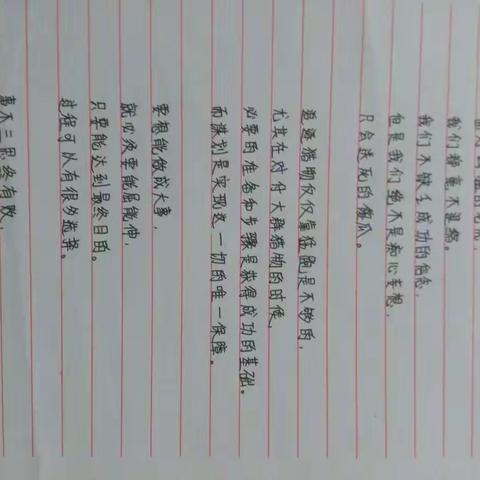 我们将毫不退缩。
我们不缺乏成功的信念,
但是我们绝不是痴心妄想,
只会送死的傻瓜。
追逐猎物仅仅靠猛跑,是不够的,
尤其在对付大群猎物的时候,
必要的准备和步骤是获得成功的基础。
而谋划是实现这一切的唯一保障。
要想能做成大事,
就必须要能屈能伸,
只要能达到最终目的。
过程可以有很多选择。
事不三思终有败,